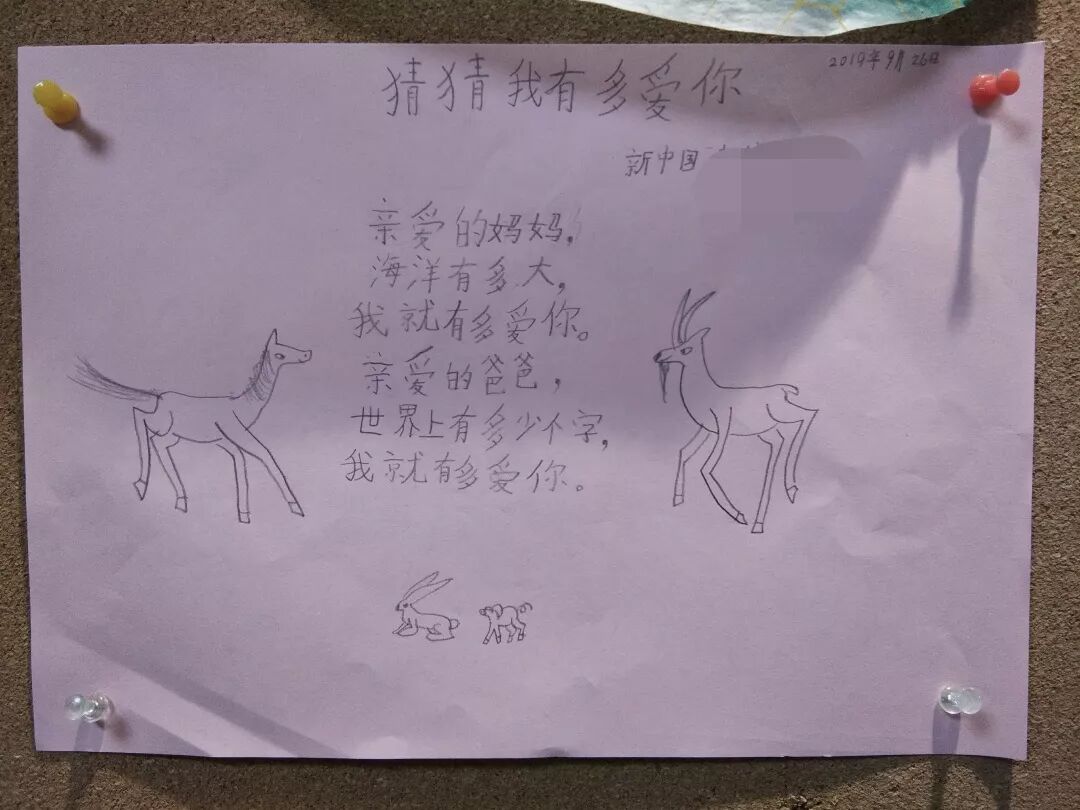 2019年9月26日
猜猜我有多爱你
新中国
亲爱的妈妈，
海洋有多大，
我就有多爱你。
亲爱的爸爸，
世界上有多少个字，
我就有多爱你。